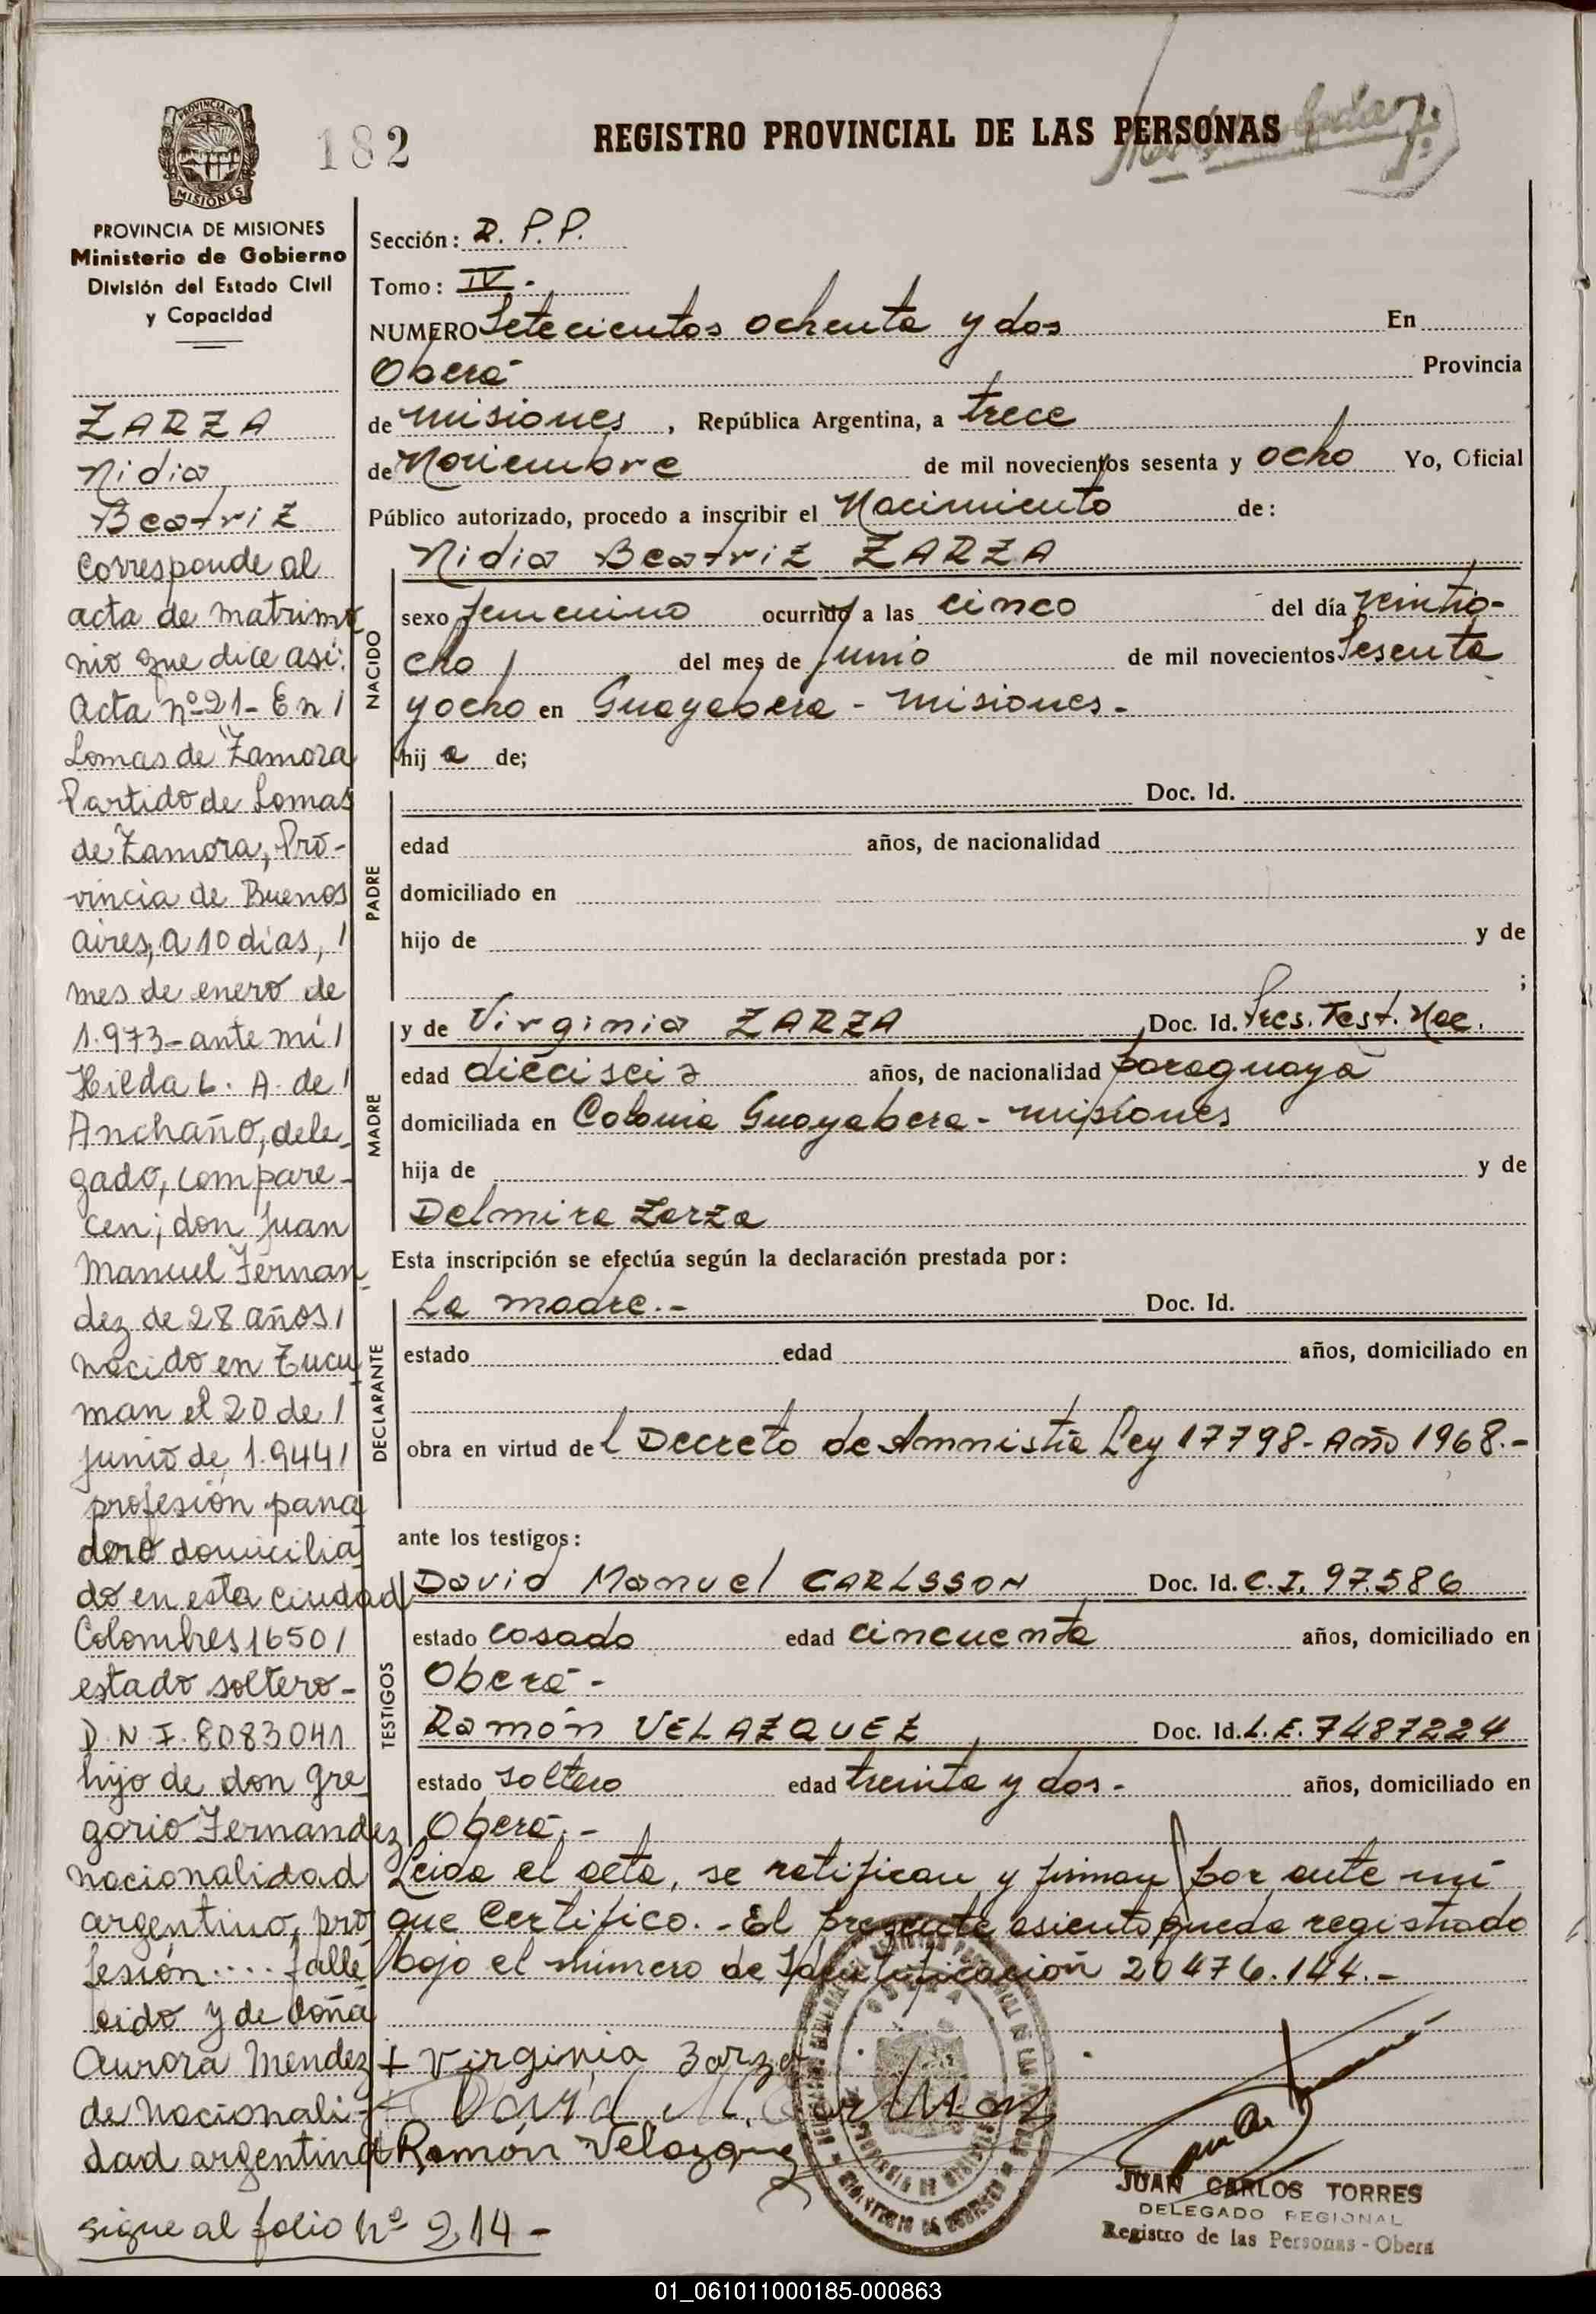 182
REGISTRO PROVINCIAL DE LAS PERSONAS
PROVINCIA DE
MISIONES
PROVINCIA DE MISIONES
Ministerio de Gobierno
División del Estado Civil
y Capacidad
ZARZA
Nidia
Beatriz
Corresponde al
acta de matrimo
nio que dice asi:
Acta nº 21 - En /
Lomas de Zamora
Partido de Lomas
de Zamora, Pro-
vincia de Buenos
Aires, a 10 días, /
mes de enero de
1.973 - ante mí /
Hilda L. A. de /
Anchaño, dele-
gado, compare-
cen; don Juan
Manuel Fernan-
dez de 28 años /
nacido en Tucu
man el 20 de /
junio de 1.944 /
profesión pana
dero domicilia
do en esta ciudad
Colombres 1650 /
estado soltero -
D.N.I. 8083041
hijo de don Gre
gorio Fernandez
nacionalidad
argentino, pro
fesión .... falle
cido y de doña
Aurora Mendez
de nacionali-
dad argentina
sigue al folio nº 214 -
Sección: R. P. P.
Tomo: IV -
NUMERO Setecientos ochenta y dos En
Oberá Provincia
de Misiones, República Argentina, a trece
de Noviembre de mil novecientos sesenta y ocho Yo, Oficial
Público autorizado, procedo a inscribir el Nacimiento de:
Nidia Beatriz ZARZA
NACIDO
sexo femenino ocurrido a las cinco del día veintio-
cho del mes de junio de mil novecientos sesenta
y ocho en Guayabera - Misiones -
hij a de;
PADRE
Doc. Id.
edad años, de nacionalidad
domiciliado en
hijo de y de
;
MADRE
y de Virginia ZARZA Doc. Id. Pres. Test. Nac.
edad dieciseis años, de nacionalidad paraguaya
domiciliada en Colonia Guayabera - Misiones
hija de y de
Delmira Zarza
Esta inscripción se efectúa según la declaración prestada por:
DECLARANTE
La madre. - Doc. Id.
estado edad años, domiciliado en
obra en virtud de l Decreto de Amnistía Ley 17798 - Año 1968. -
ante los testigos:
TESTIGOS
David Manuel CARLSSON Doc. Id. C.I. 97.586
estado casado edad cincuenta años, domiciliado en
Oberá -
Ramón VELAZQUEZ Doc. Id. L.E. 7487224
estado soltero edad treinta y dos - años, domiciliado en
Oberá. -
Leida el acta, se ratifican y firman por ante mí
que certifico. - El presente asiento queda registrado
bajo el número de Identificación 20476.144. -
+ Virginia Zarza
David M. Carlsson
Ramón Velazquez
JUAN CARLOS TORRES
DELEGADO REGIONAL
Registro de las Personas - Oberá
01_061011000185-000863